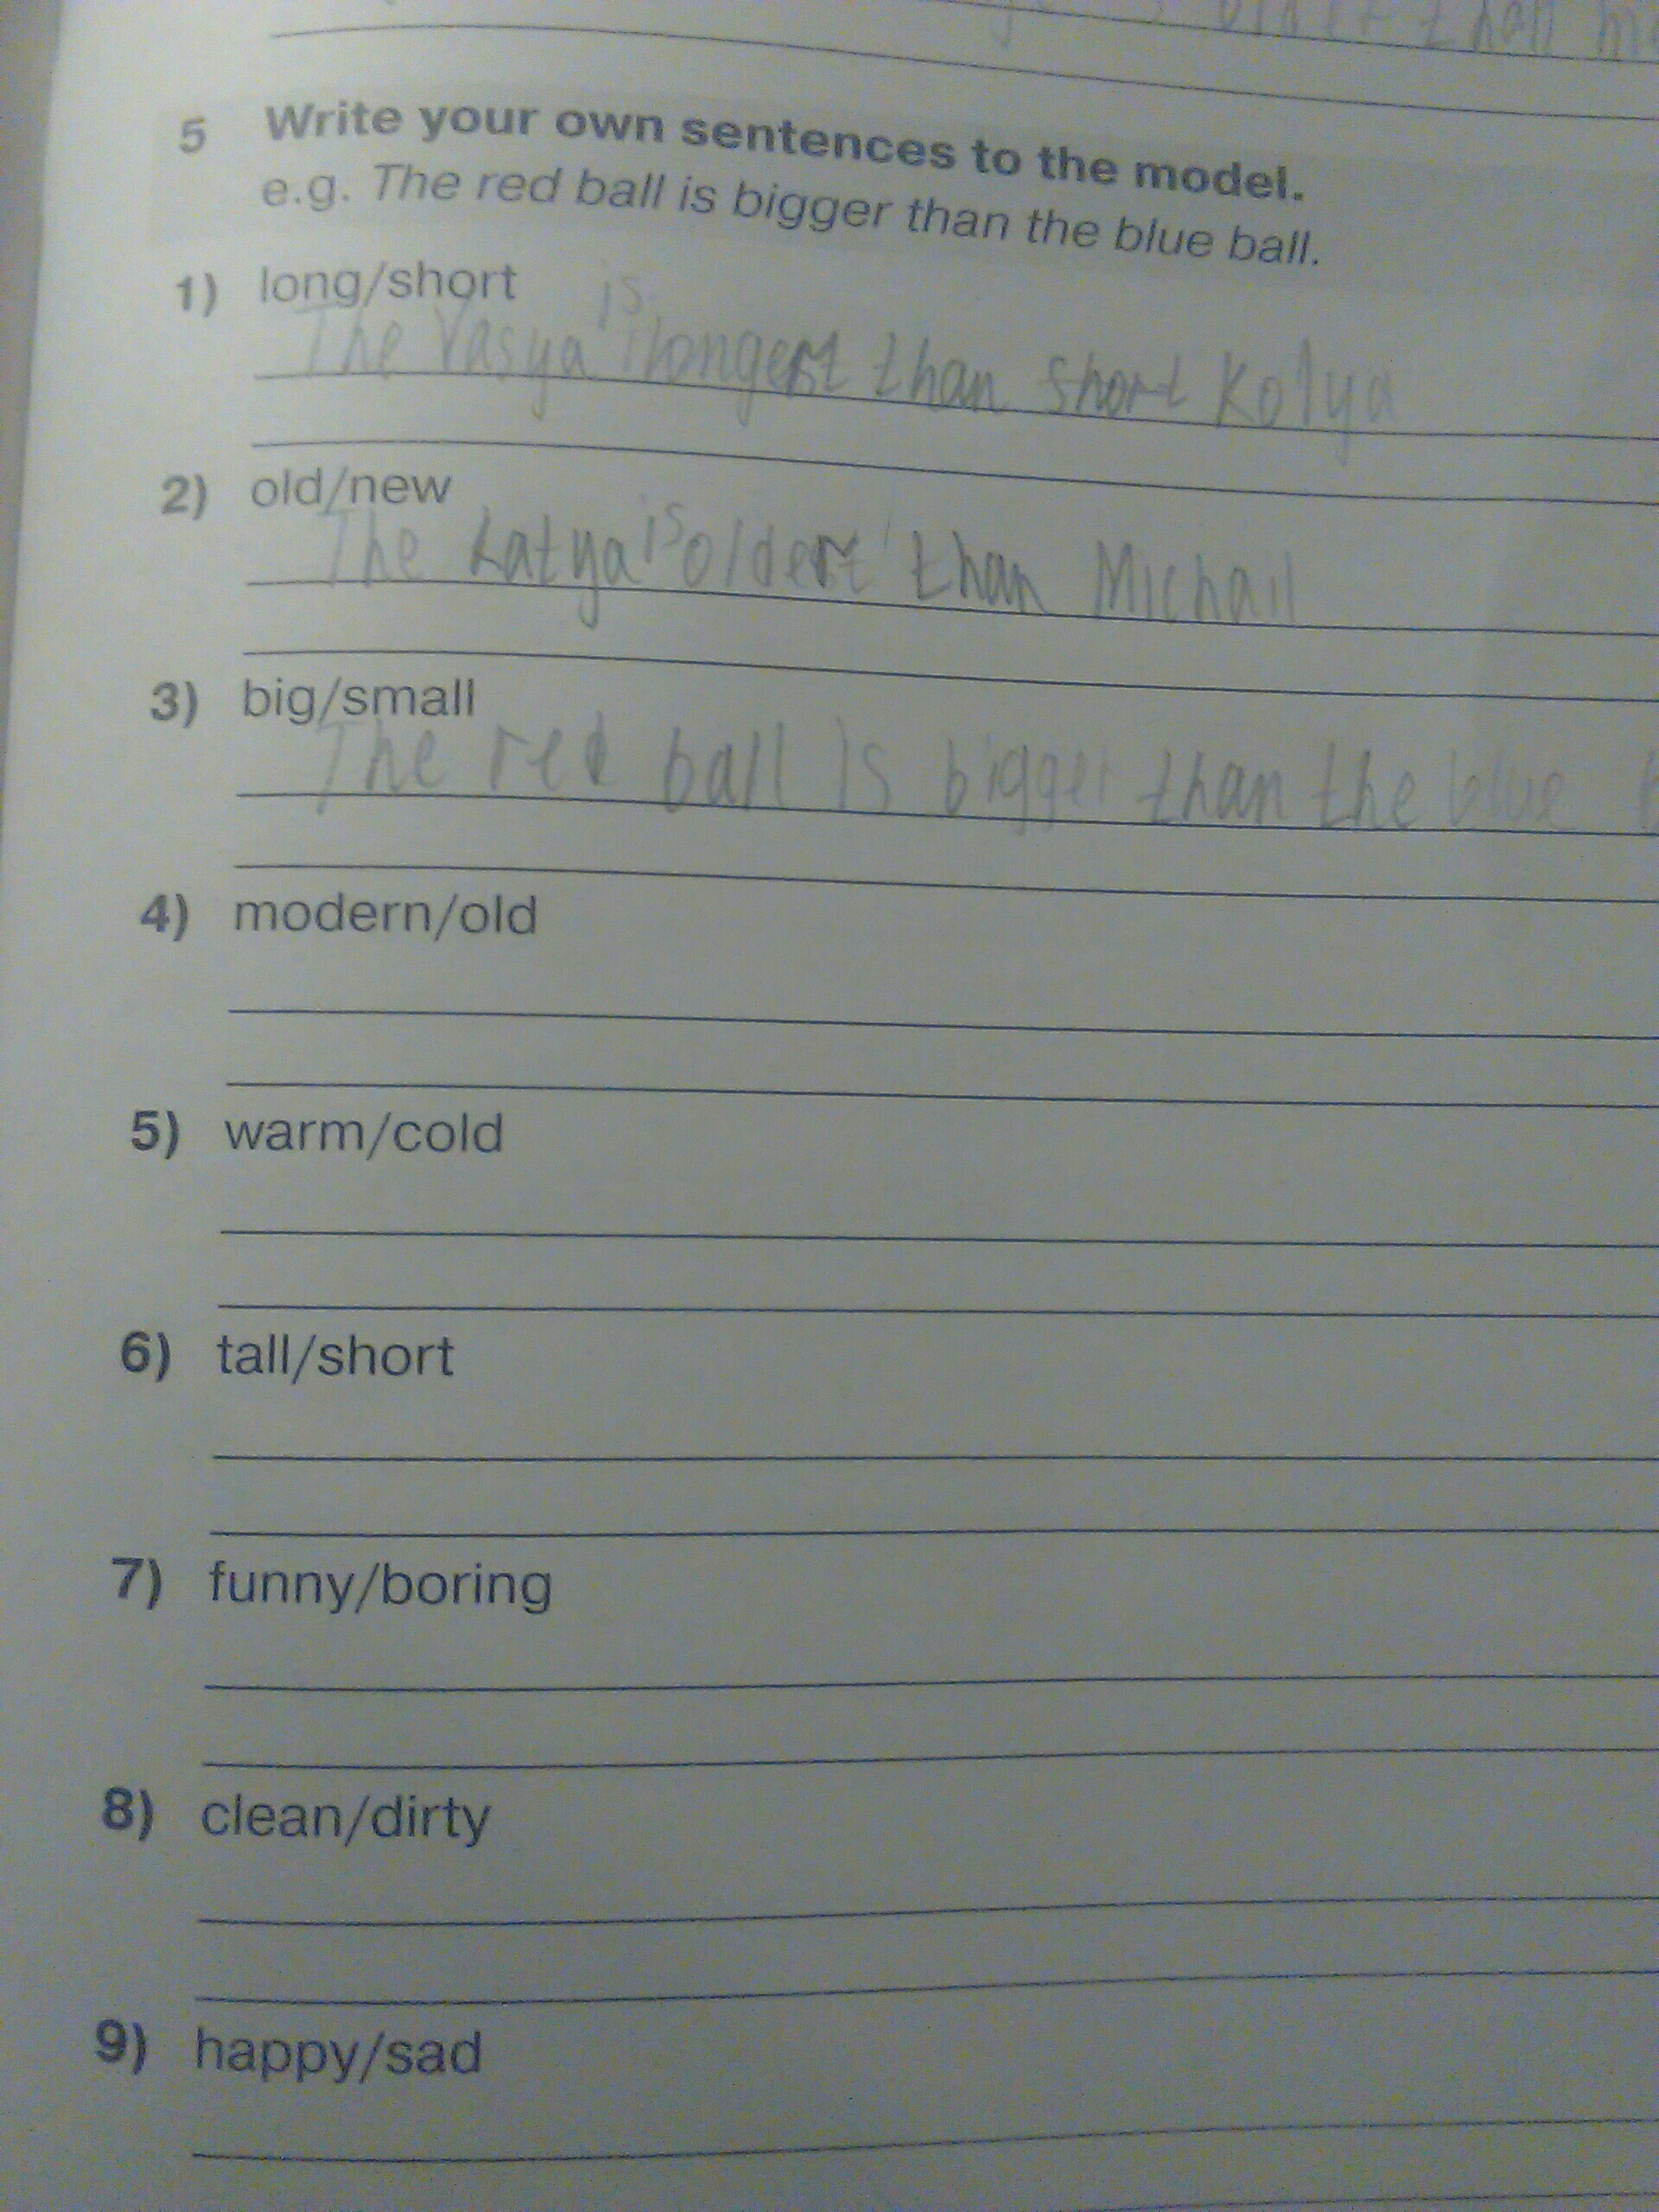 older than m
5 Write your own sentences to the model.
e.g. The red ball is bigger than the blue ball.
1) long/short
is
The Vasya longest than short Kolya
2) old/new
The Katya is oldert than Michail
3) big/small
The red ball is bigger than the blue b
4) modern/old
5) warm/cold
6) tall/short
7) funny/boring
8) clean/dirty
9) happy/sad